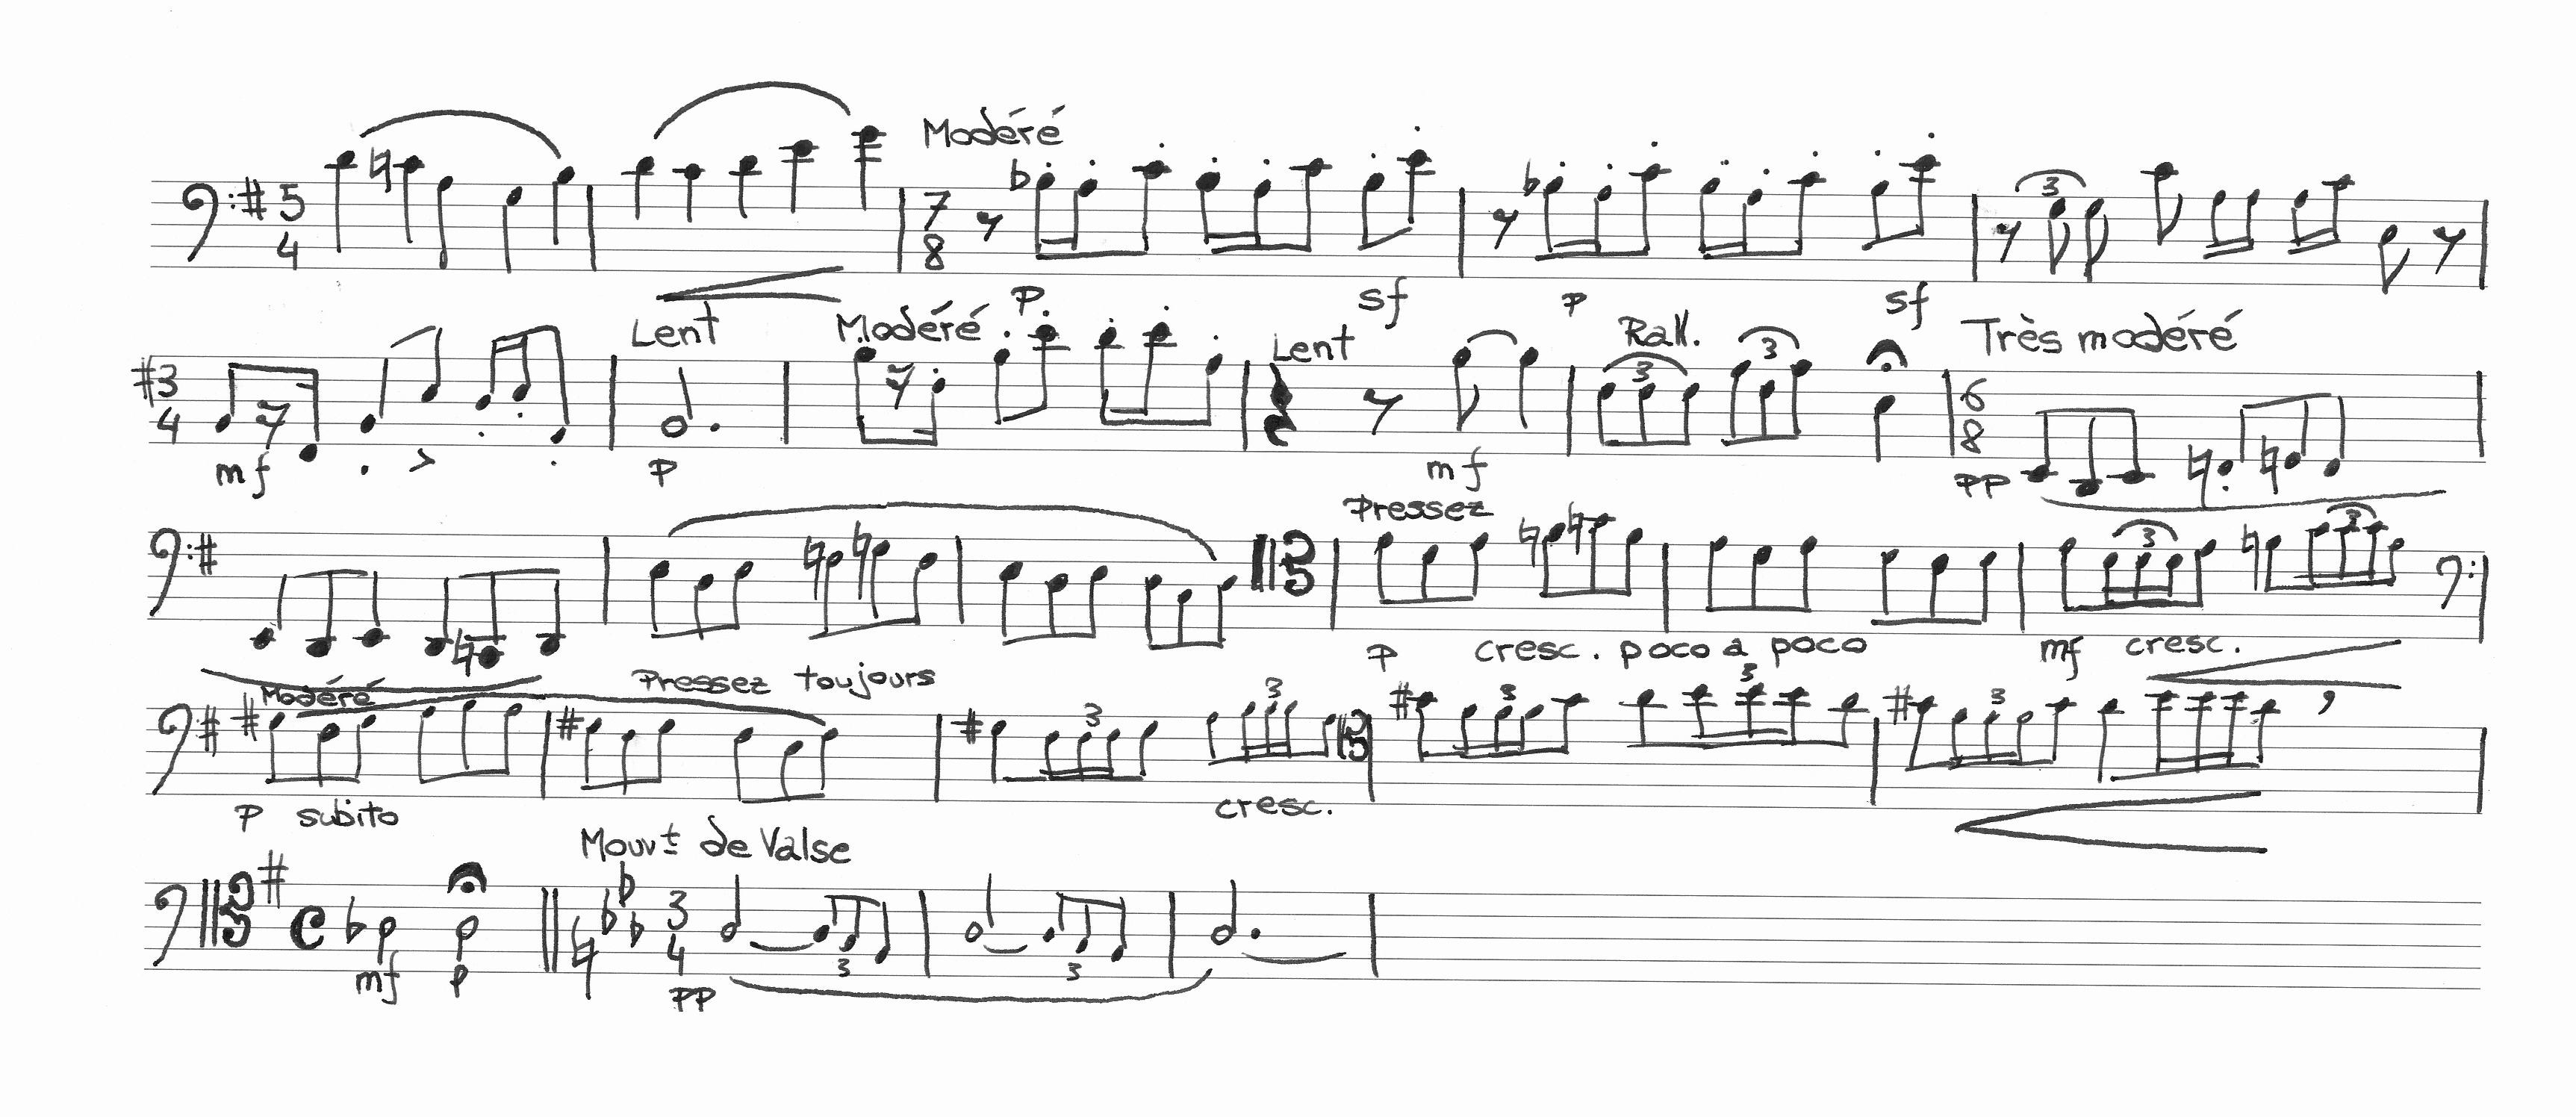 Modéré
5 4 7 8 3
p. sf p sf
Lent Modéré Lent Rall. Très modéré
3 4 3 3 6 8
mf p mf pp
Pressez
3 3
p cresc. poco a poco mf cresc.
Modéré Pressez toujours
3 3 3 3 3
p subito cresc.
Mouvt de Valse
C 3 4
mf p pp 3 3